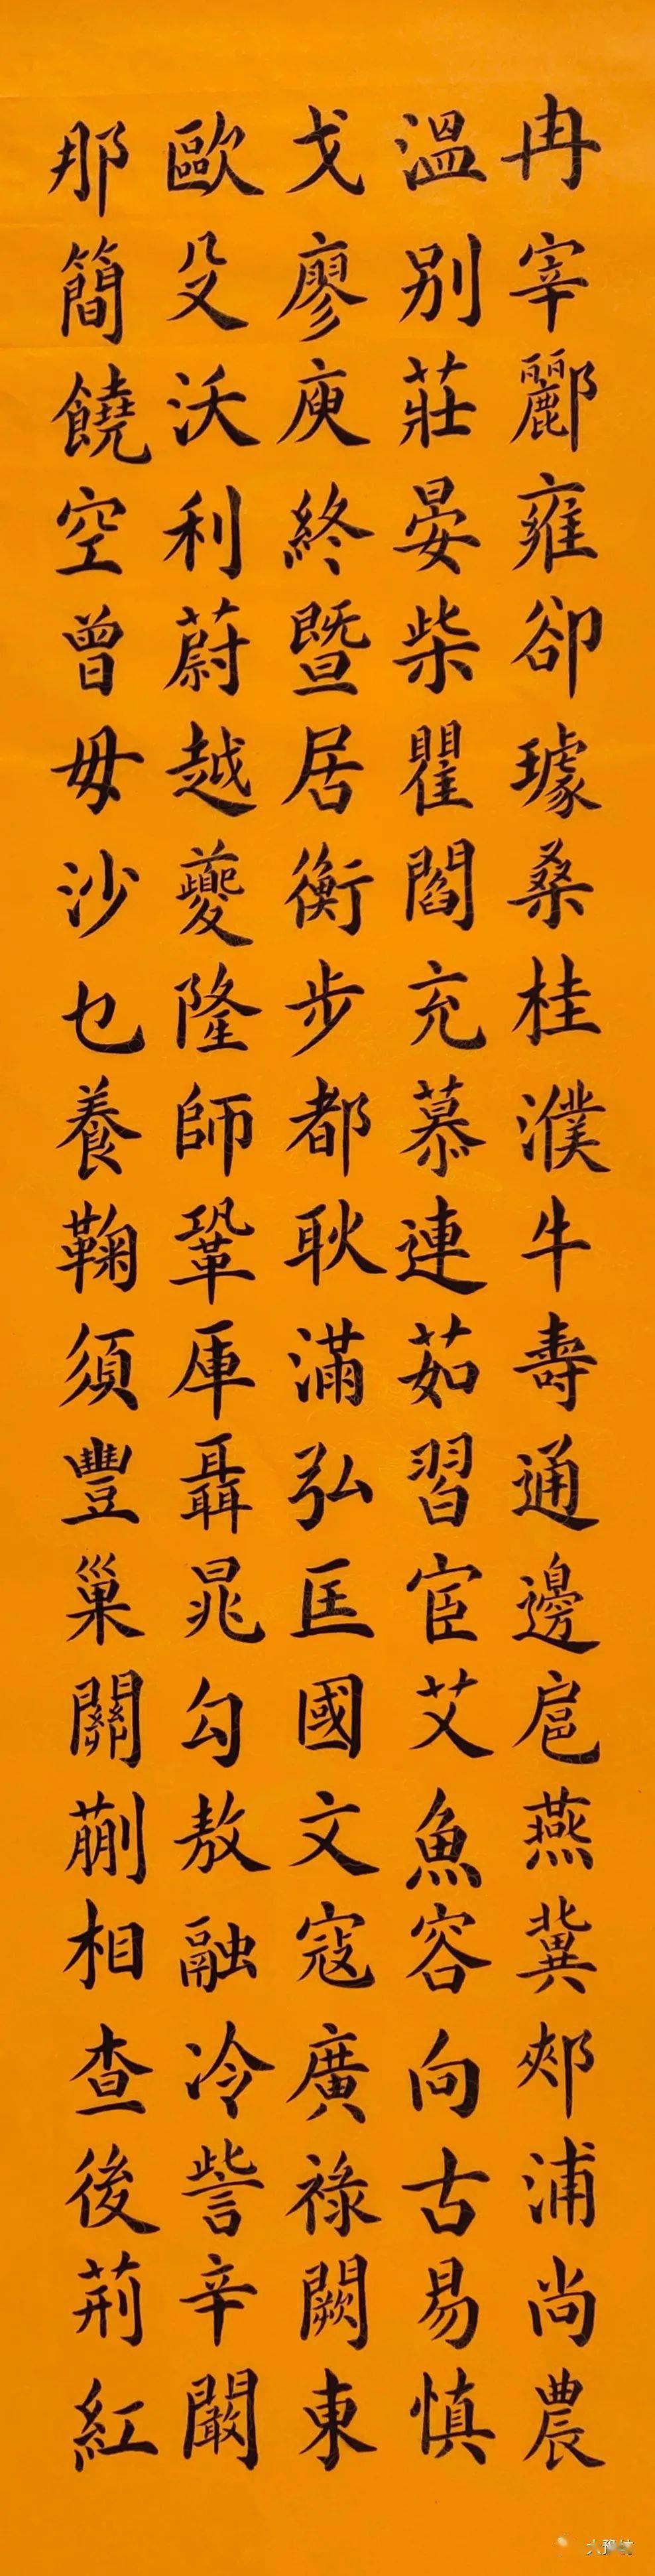 冉宰酈雍卻璩桑桂濮牛壽通邊扈燕冀郟浦尚農
溫別莊晏柴瞿閻充慕連茹習宦艾魚容向古易慎
戈廖庾終暨居衡步都耿滿弘匡國文寇廣祿闕東
歐殳沃利蔚越夔隆師鞏厙聶晁勾敖融冷訾辛闞
那簡饒空曾毋沙乜養鞠須豐巢關蒯相查後荊紅